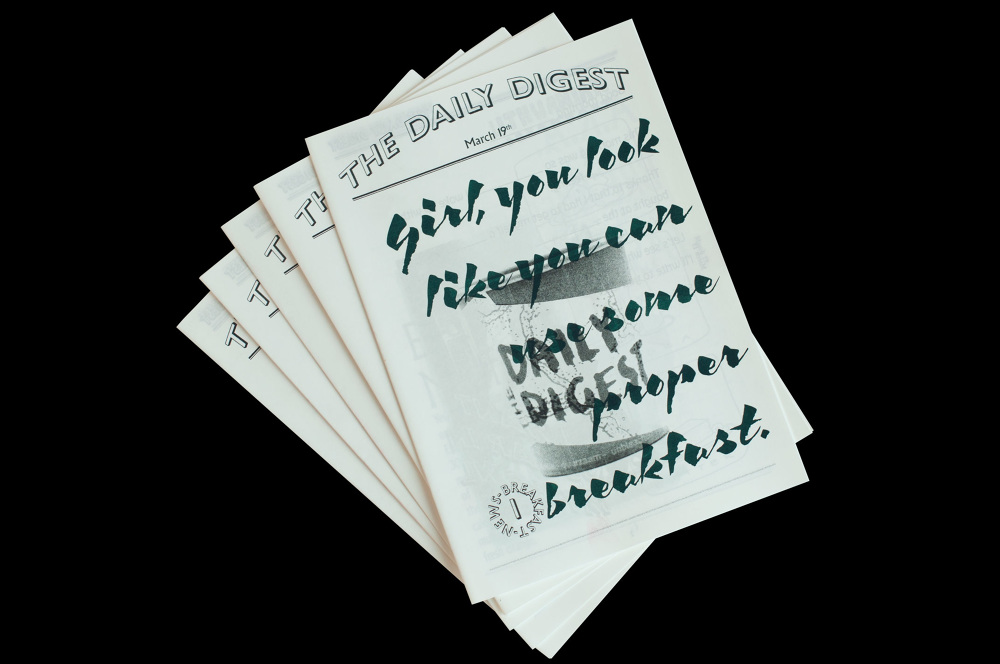 THE DAILY DIGEST
March 19th
Girl, you look
like you can
use some
proper
breakfast.
DAILY
DIGEST
NEWS·BREAKFAST·
1
TH
T
T
T